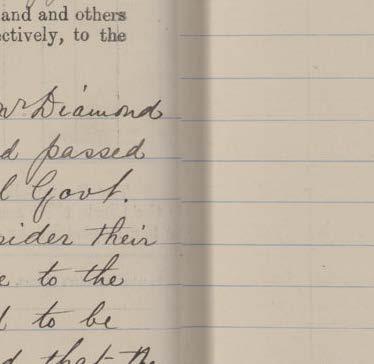 and and others
ectively, to the
Mr Diamond
d passed
l Govt.
sider their
e to the
d to be
d that the